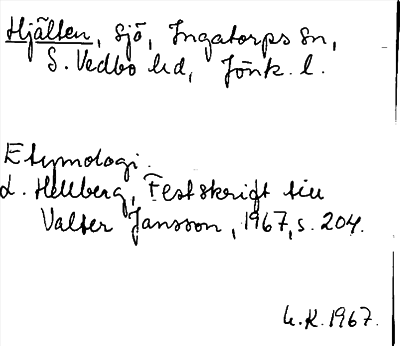 Hjälten, sjö, Ingatorps sn,
S. Vedbo hd, Jönk. l.
Etymologi.
L. Hellberg, Festskrift till
Valter Jansson, 1967, s. 204.
U.K. 1967.